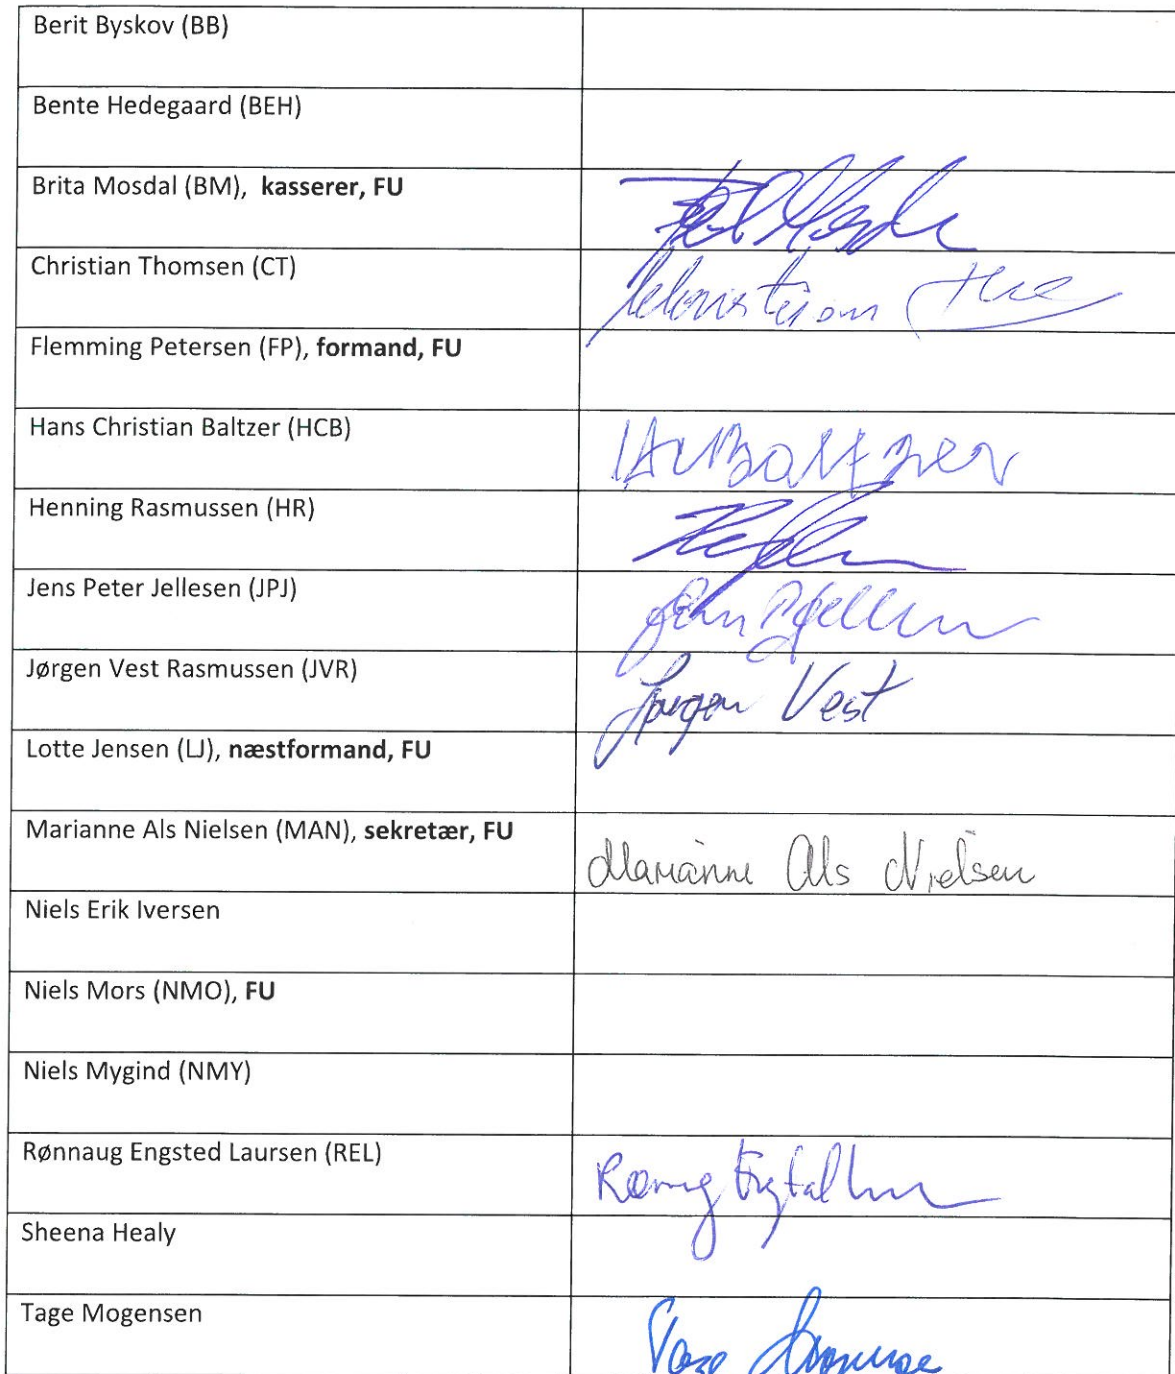 Berit Byskov (BB)
Bente Hedegaard (BEH)
Brita Mosdal (BM), kasserer, FU
Christian Thomsen (CT)
Flemming Petersen (FP), formand, FU
Hans Christian Baltzer (HCB)
HCBaltzer
Henning Rasmussen (HR)
Jens Peter Jellesen (JPJ)
Jørgen Vest Rasmussen (JVR)
Jørgen Vest
Lotte Jensen (LJ), næstformand, FU
Marianne Als Nielsen (MAN), sekretær, FU
Marianne Als Nielsen
Niels Erik Iversen
Niels Mors (NMO), FU
Niels Mygind (NMY)
Rønnaug Engsted Laursen (REL)
Sheena Healy
Tage Mogensen